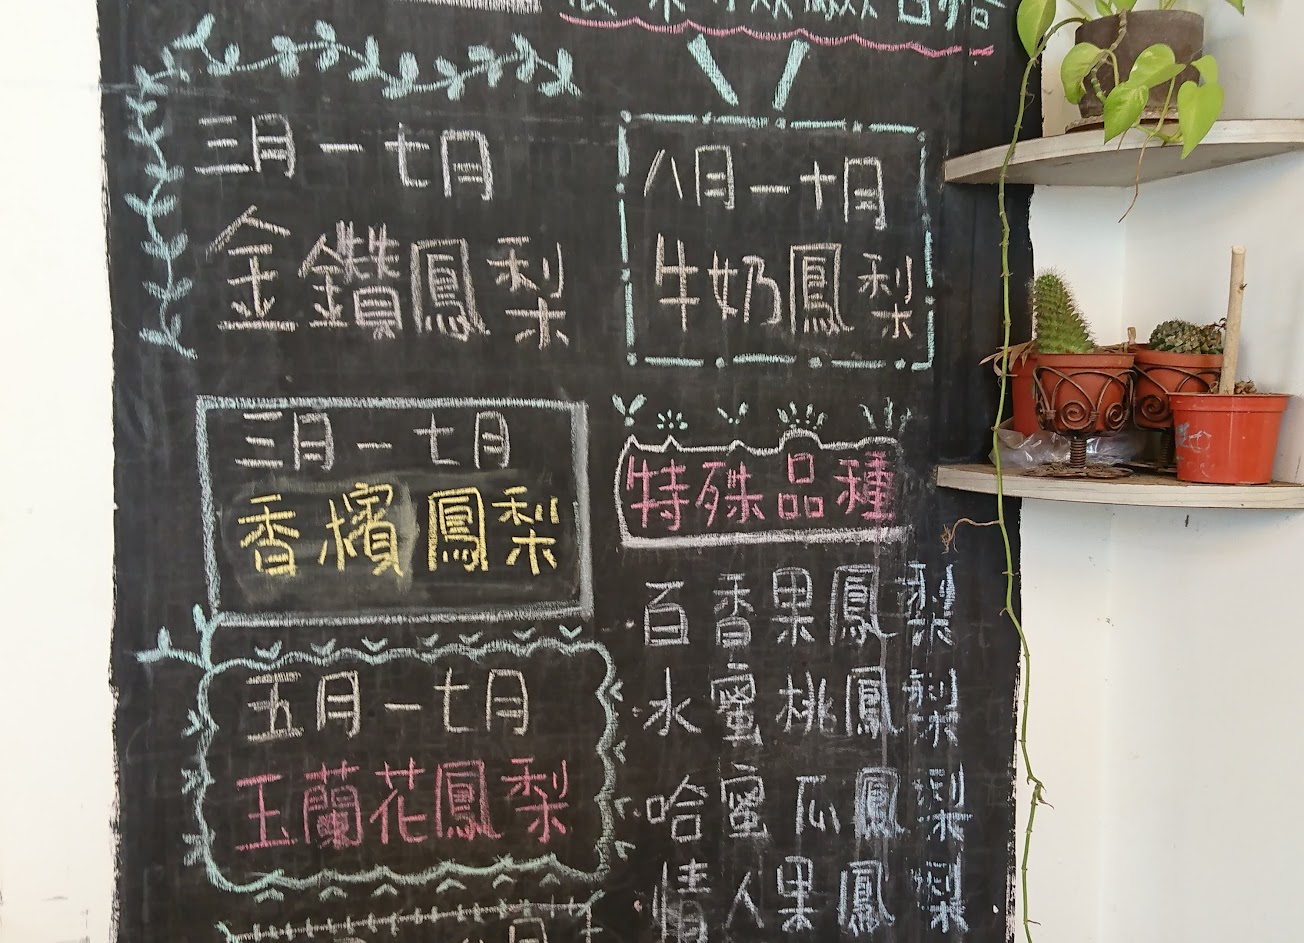 三月一七月
金鑽鳳梨
八月一十月
牛奶鳳梨
三月一七月
香檳鳳梨
五月一七月
玉蘭花鳳梨
特殊品種
百香果鳳梨
水蜜桃鳳梨
哈蜜瓜鳳梨
情人果鳳梨